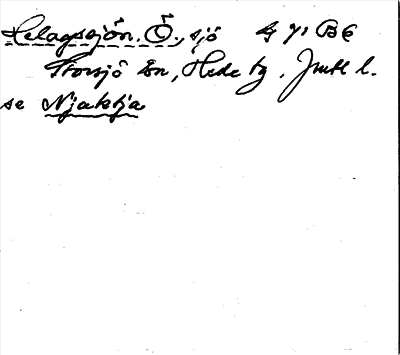 Helagssjön, Ö., sjö G 71 B6
Storsjö sn, Hede tg, Jmtl l.
se Njaktja